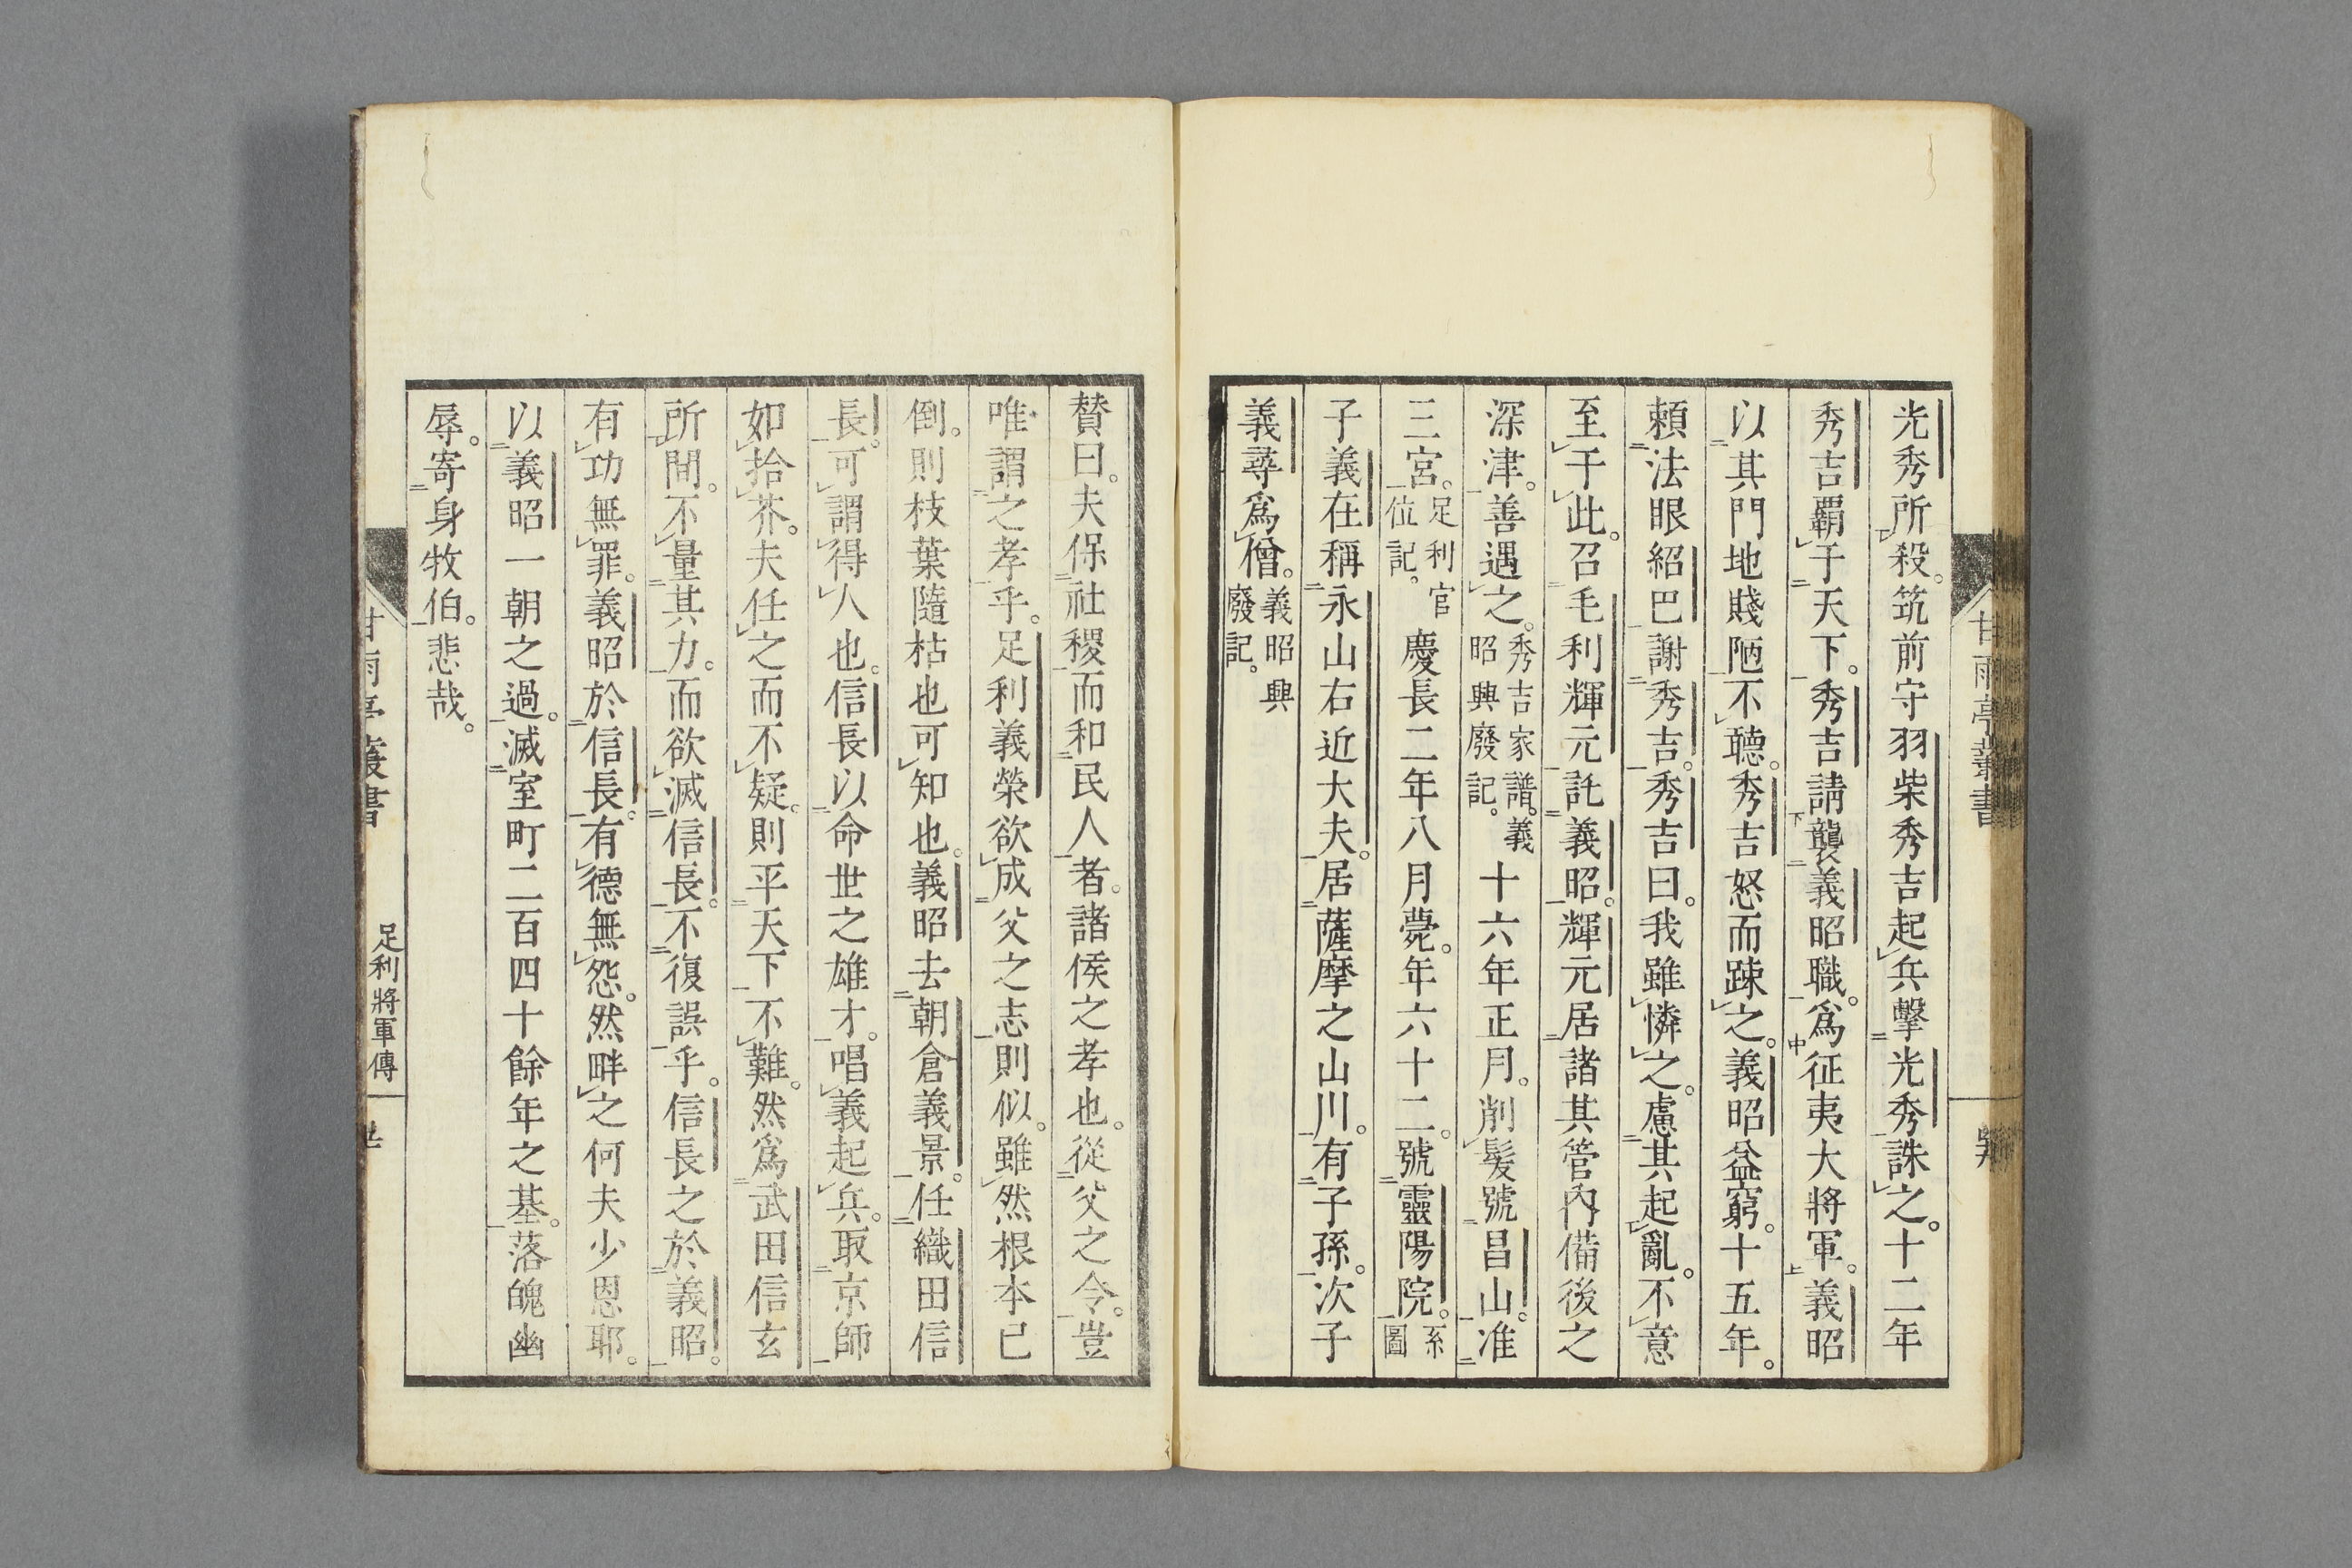 光秀所殺。筑前守羽柴秀吉起兵擊光秀誅之。十二年
秀吉覇于天下。秀吉請襲義昭職。爲征夷大將軍。義昭
以其門地賤陋不聽。秀吉怒而踈之。義昭益窮。十五年。
頼法眼紹巴謝秀吉。秀吉曰。我雖憐之。慮其起亂。不意
至于此。召毛利輝元託義昭。輝元居諸其管內備後之
深津。善遇之。秀吉家譜。義昭興廢記。十六年正月。削髮號昌山。准
三宮。足利官位記。慶長二年八月薨。年六十二。號靈陽院。系圖
子義在稱永山右近大夫。居薩摩之山川。有子孫。次子
義尋爲僧。義昭興廢記。
甘雨亭叢書
賛曰。夫保社稷而和民人者。諸侯之孝也。從父之令。豈
唯謂之孝乎。足利義榮欲成父之志則似。雖然根本已
倒。則枝葉隨枯也可知也。義昭去朝倉義景。任織田信
長。可謂得人也。信長以命世之雄才。唱義起兵。取京師
如拾芥。夫任之而不疑。則平天下不難。然爲武田信玄
所間。不量其力。而欲滅信長。不復誤乎。信長之於義昭。
有功無罪。義昭於信長。有德無怨。然畔之何夫少恩耶。
以義昭一朝之過。滅室町二百四十餘年之基。落魄幽
辱。寄身牧伯。悲哉。
甘雨亭叢書
足利將軍傳